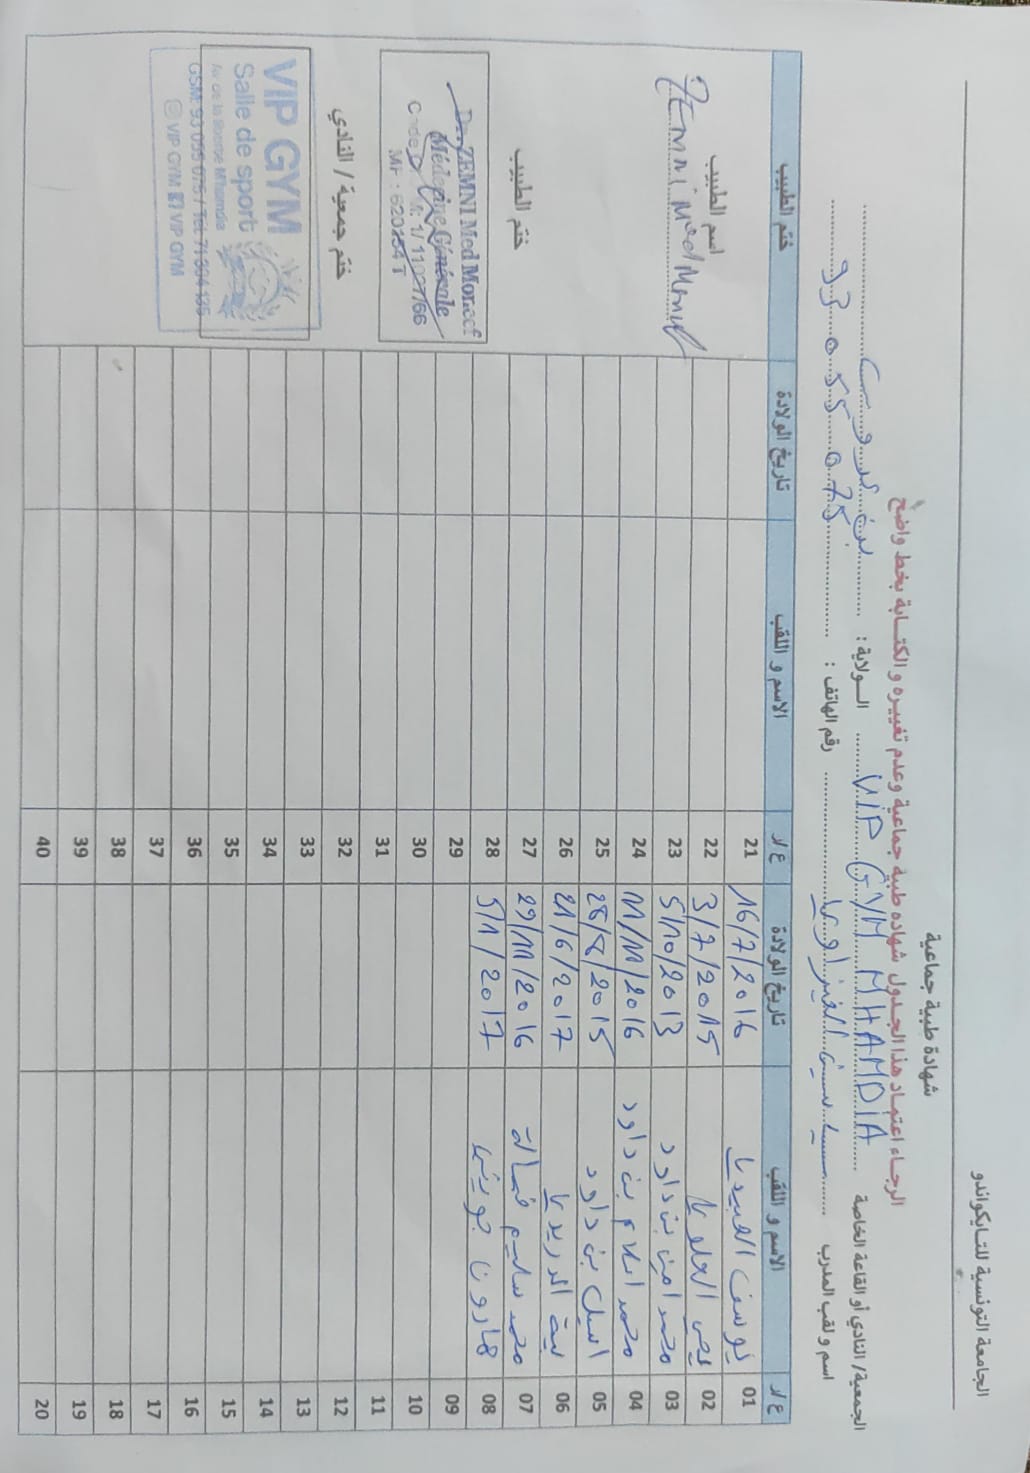 الجامعة التونسية للتايكواندو
شهادة طبية جماعية
الرجاء اعتماد هذا الجدول شهادة طبية جماعية وعدم تغييره و الكتابة بخط واضح
الجمعية/ النادي أو القاعة الخاصة VIP GYM MHAMDIA الولاية : بن عروس
اسم و لقب المدرب رقم الهاتف : 93 055 075
ع/ر الاسم و اللقب تاريخ الولادة ع/ر الاسم و اللقب تاريخ الولادة ختم الطبيب
01 يوسف العبيدي 16/7/2016 21
02 يحي العلوي 3/7/2015 22
03 محمد امين بن داود 5/10/2013 23
04 محمد اسلام بن داود 11/11/2016 24
05 اسيل بن داود 28/8/2015 25
06 الدريدي 21/6/2017 26
07 محمد سليم 29/11/2016 27
08 هارون جويني 5/1/2017 28
09 29
10 30
11 31
12 32
13 33
14 34
15 35
16 36
17 37
18 38
19 39
20 40
اسم الطبيب
Zemni Med Moncef
ختم الطبيب
Dr. ZEMNI Med Moncef
Médecine Générale
MF : 620154 T
ختم جمعية / النادي
VIP GYM
Salle de sport
Av de la Mhamdia
GSM: 93 055 075 / Tél: 71 394 135
VIP GYM VIP GYM